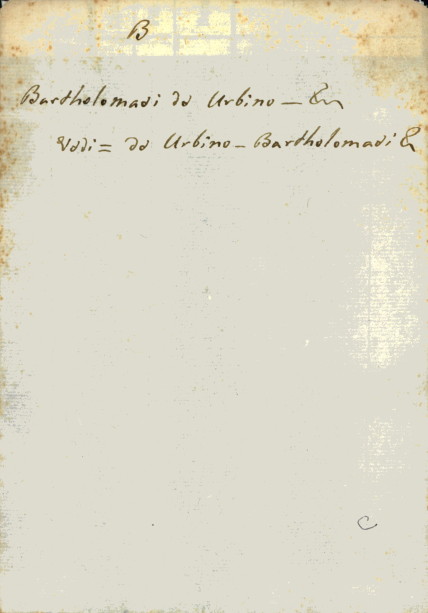 B
Bartholomaei de Urbino — &c
Vedi = de Urbino — Bartholomaei &
C